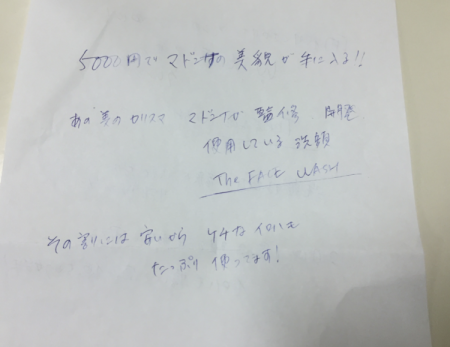 5000円でマドンナの美貌が手に入る!!
あの美のカリスマ マドンナが 監修 開発
使用している 洗顔
The FACE WASH
その割りには 安いから ケチな イロハも
たっぷり 使ってます!